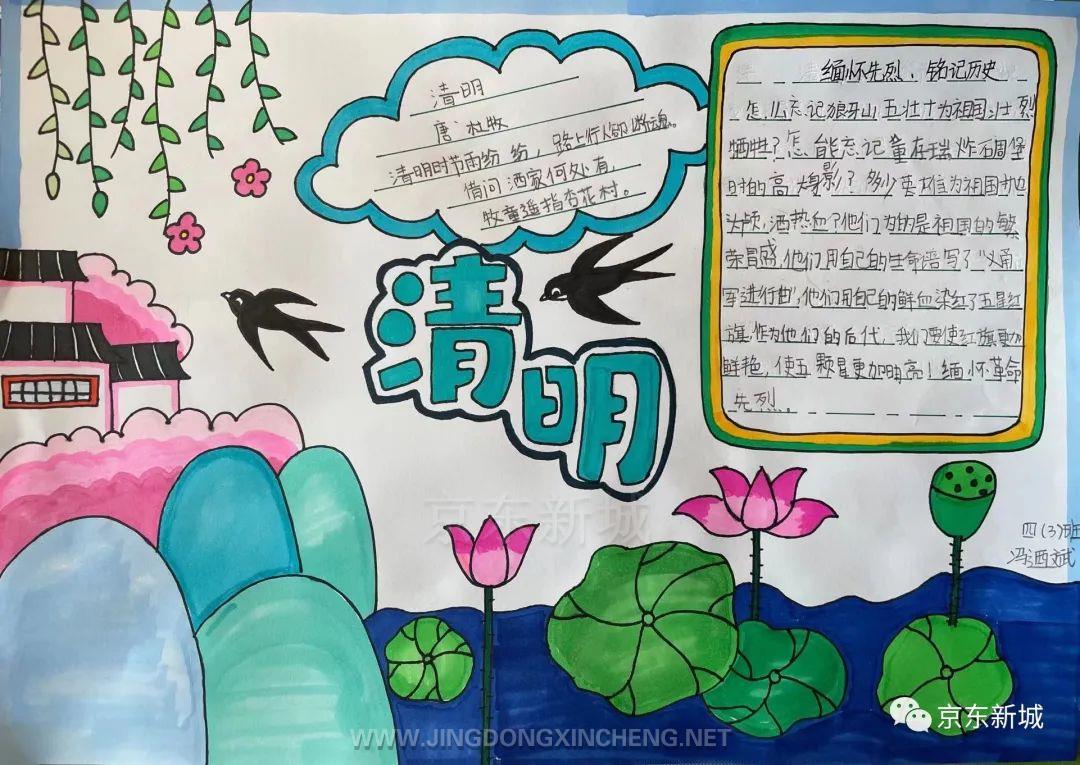 清明
唐 杜牧
清明时节雨纷纷，路上行人欲断魂。
借问酒家何处有，
牧童遥指杏花村。
清明
缅怀先烈、铭记历史
怎么忘记狼牙山五壮士为祖国壮烈
牺牲？怎能忘记董存瑞炸石周堡
时的高大身影？多少英雄为祖国抛
头颅，洒热血？他们为的是祖国的繁
荣昌盛，他们用自己的生命谱写了“义勇
军进行曲”，他们用自己的鲜血染红了五星红
旗，作为他们的后代，我们要使红旗更加
鲜艳，使五颗星更加明亮！缅怀革命
先烈。
四(3)班
冯洒斌
京东新城
京东新城
WWW.JINGDONGXINCHENG.NET